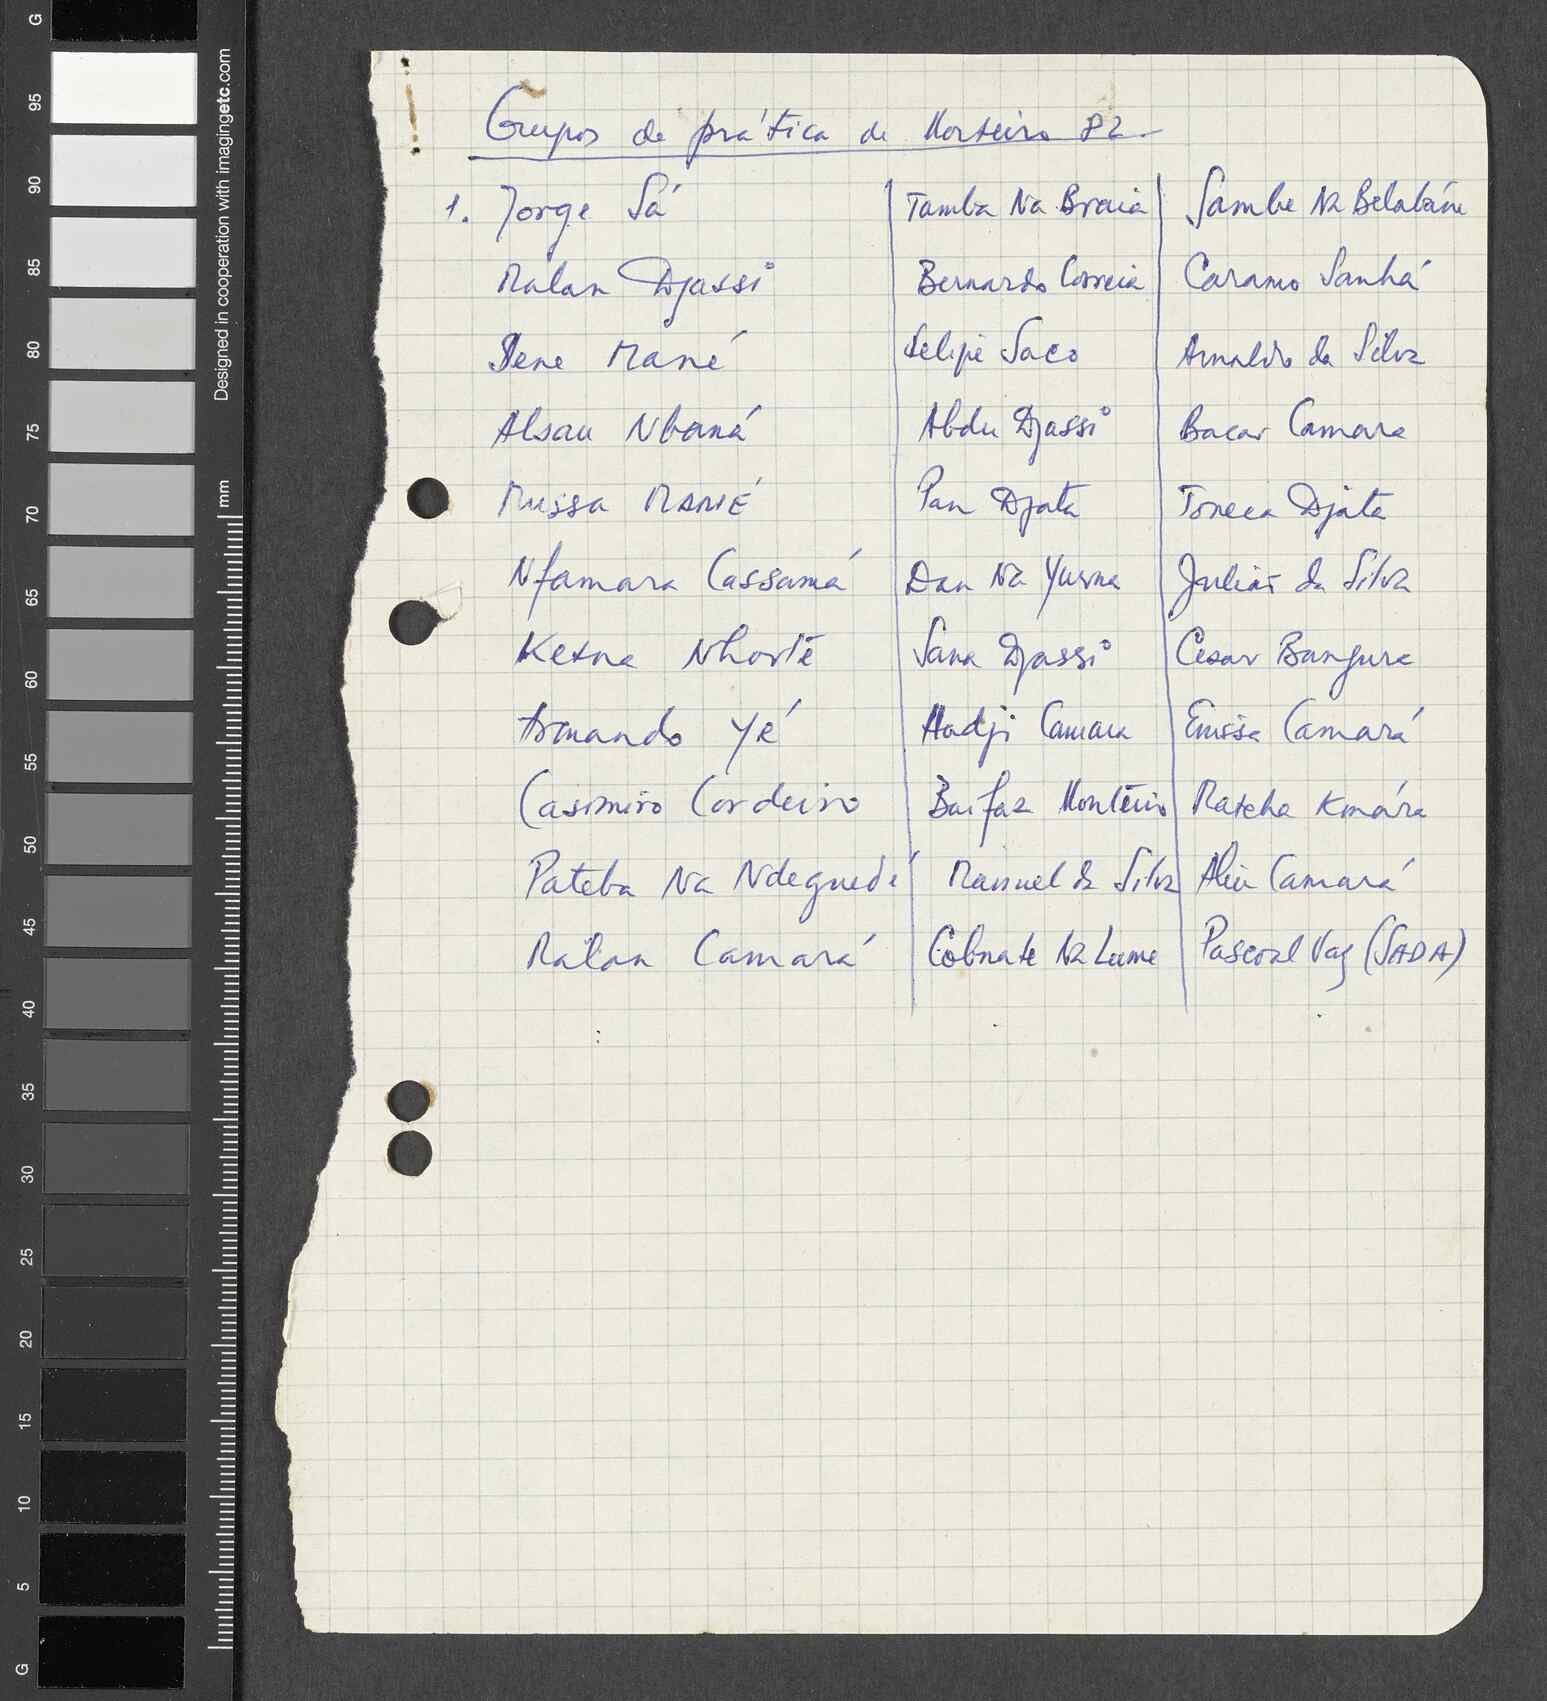 Grupos de prática de Morteiro 82
1. Jorge Sá Tamba Na Braia Sambe Na Belabáne
Malan Djassi Bernardo Correia Caramo Sanhá
Sene Mané Felipe Saco Arnaldo da Silva
Alsau Nbaná Abdu Djassi Bacar Camara
Mussa MANÉ Pan Djata Toneca Djata
Nfamara Cassamá Dan Na Julião da Silva
Nhorté Sana Djassi Cesar Bangura
Armando Yé Hadji Camara Camará
Casimiro Cordeiro Monteiro Kmára
Pateba Na Ndeguedé Manuel da Silva Aliu Camará
Malan Camará Cobnate Na Lume Pascoal Vaz (SADA)
G
95
90
85
80
75
70
65
60
55
50
45
40
35
30
25
20
15
10
5
G
Designed in cooperation with imagingetc.com
mm